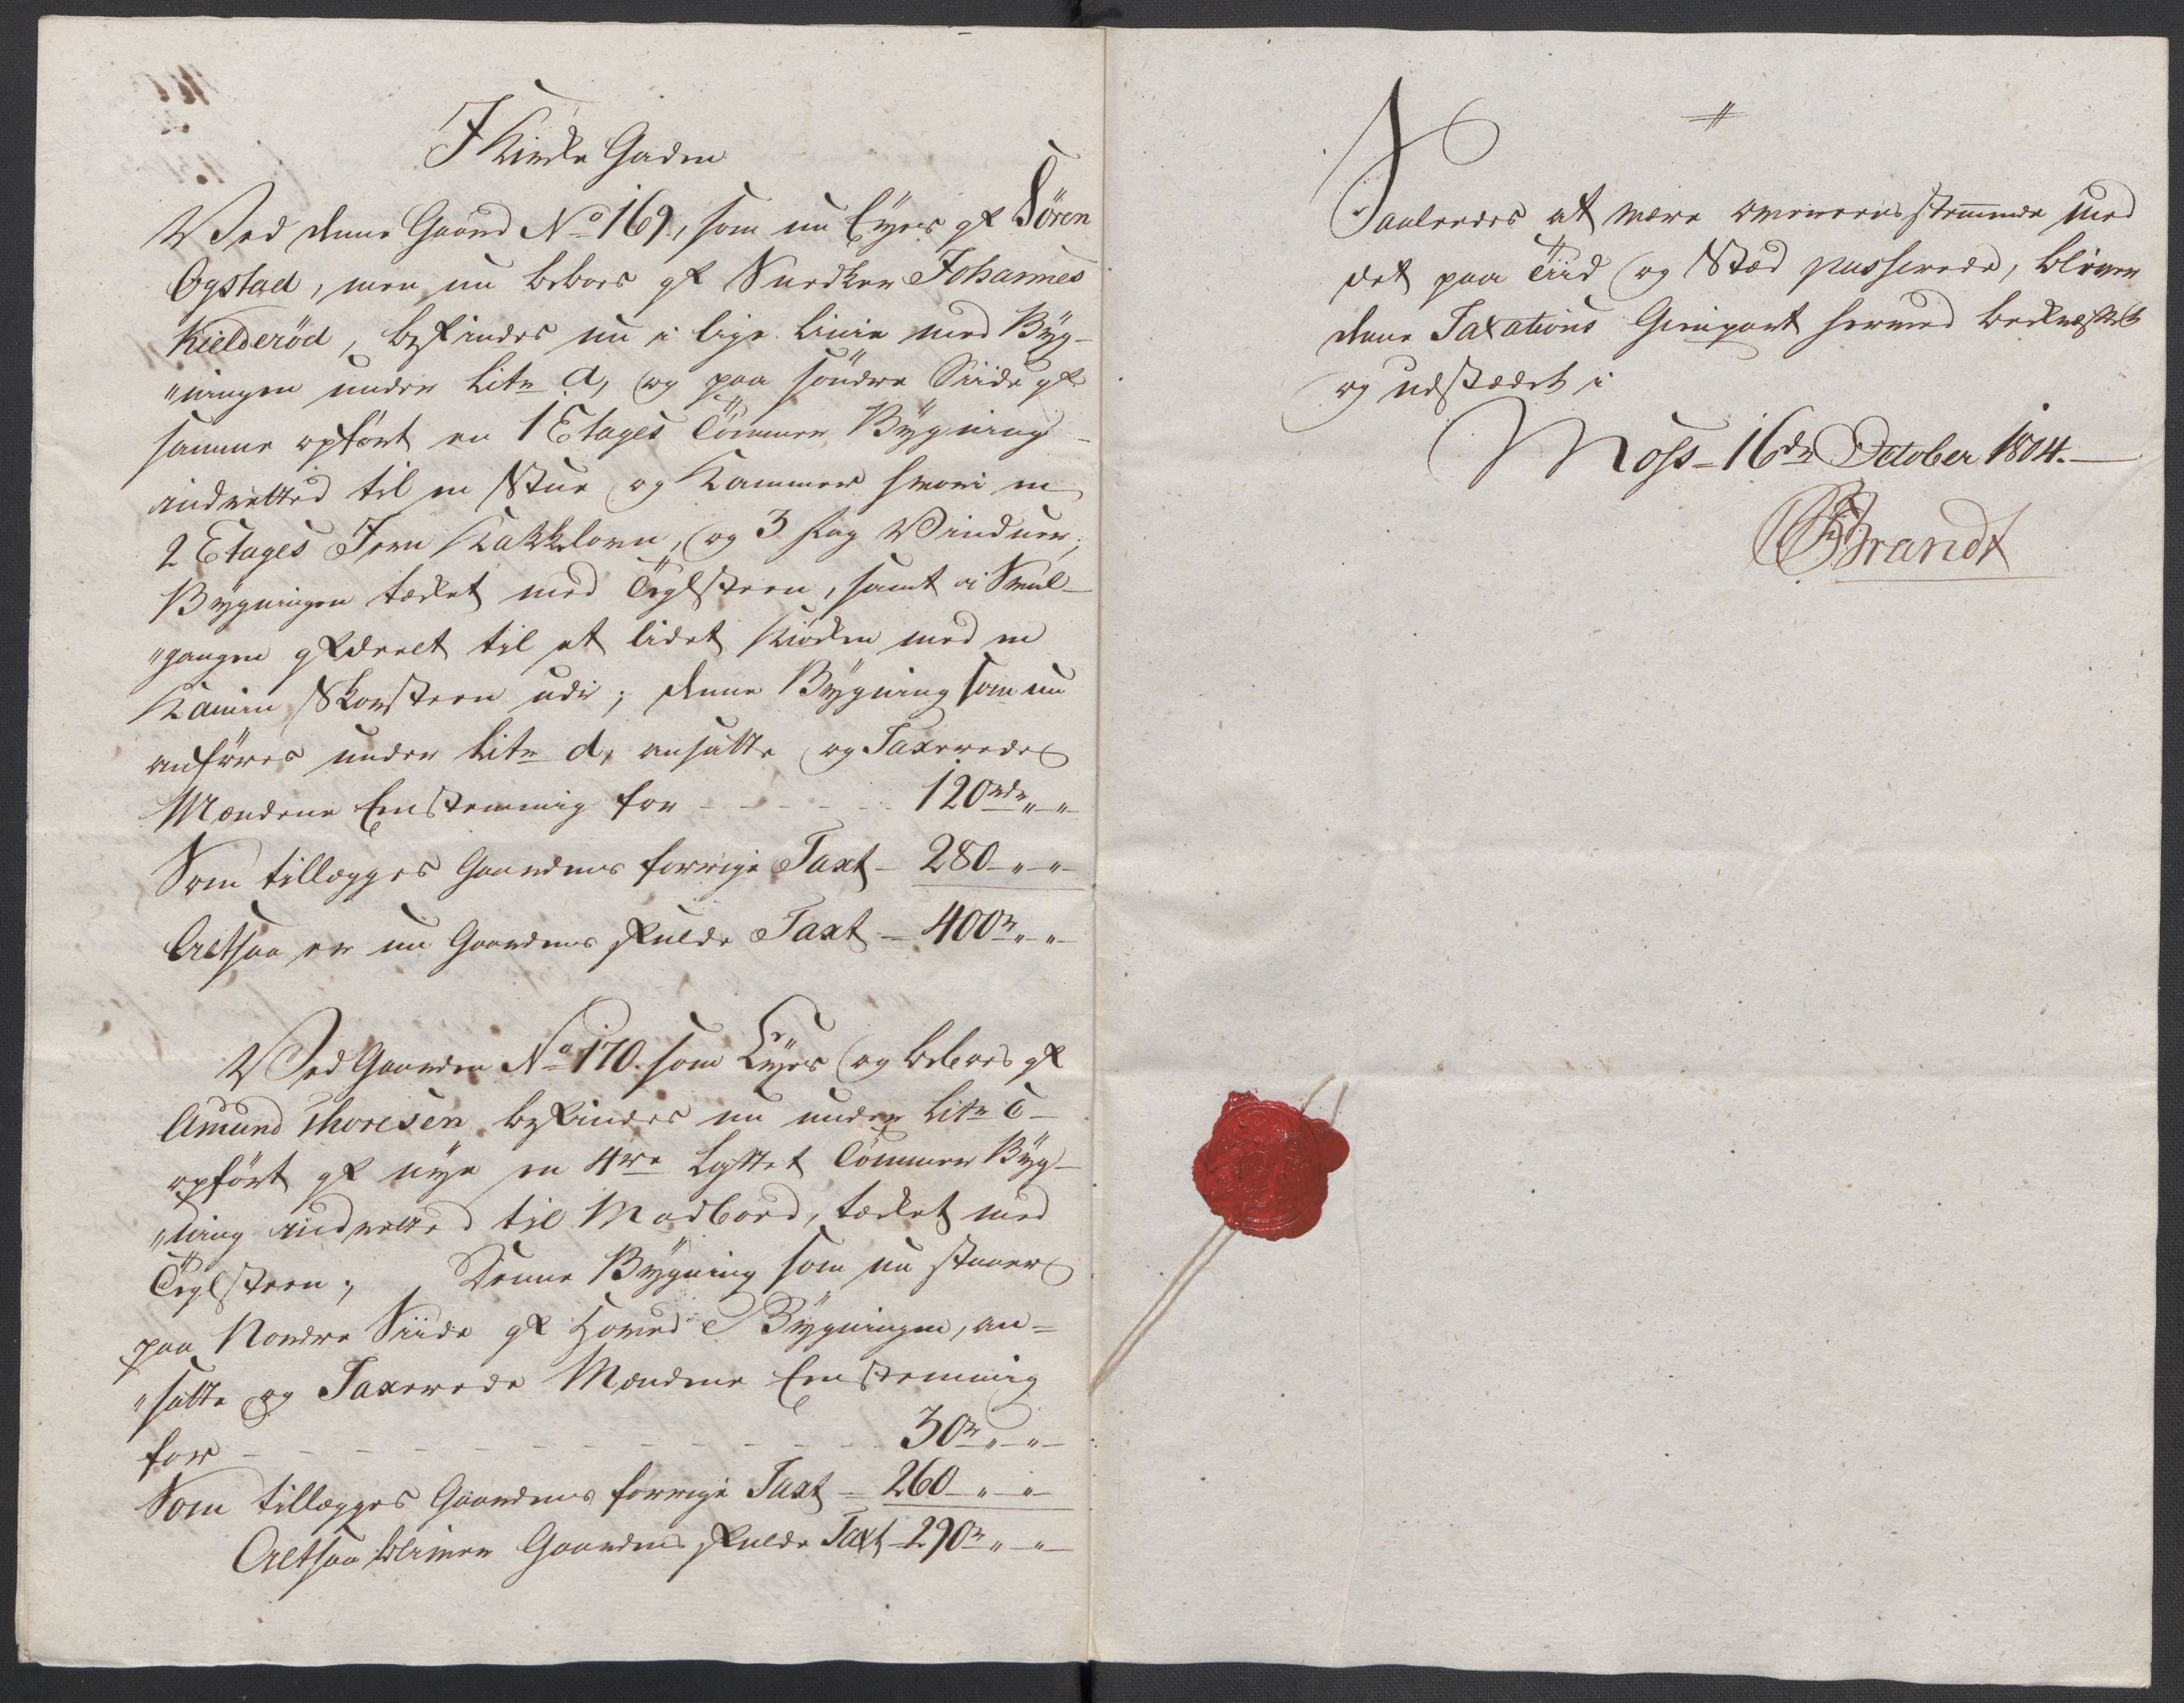 I Kirke Gaden
Ved denne Gaard No 169, som nu Eyes af Sören
Ogstad, men nu beboes af Snedker Johannes
Kielderöd, befindes nu i lige Linie med Byg-
"ningen under Litr a, og paa söndre Siide af
samme opfört en 1 Etages Tömmer Bygning
indretted til en Stue og Kammer hvori en
2 Etages Jern Kakkelovn, og 3 fag Vinduer;
Bygningen tækket med Teglsteen, samt i Sval-
"gangen afdeelt til et lidet Kiöcken med en
Kamin Skorsteen udi; denne Bygning som nu
anföres under Litr d, ansatte og Taxerede
Mændene Eenstemmig for - - - - - 120 rdr " - "
Som tillægges Gaardens forrige Taxt - 280 - " - "
Altsaa er nu Gaardens fulde Taxt - 400 r " - "
Ved Gaarden No 170. som Eyes og beboes af
Amund Thoresen befindes nu under Litr C -
opfört af nye en 4re Lyttet Tömmer Byg-
"ning indretted til Madbord, tækket med
Teglsteen; Denne Bygning som nu staaer
paa Nordre Siide af Hoved Bygningen, an=
"satte og Taxerede Mændene Eenstemmig
for - - - - - - - - - - - 30 r " - "
Som tillægges Gaardens forrige Taxt - 260 - " - "
Altsaa bliver Gaardens fulde Taxt 290 r " - "
Saaledes at være overeensstemmende med
det paa Tiid og Stæd passerede, bliver
denne Taxations Gienpart hermed bekræftet
og udstædet i
Moss - 16de October 1804. -
Brandt